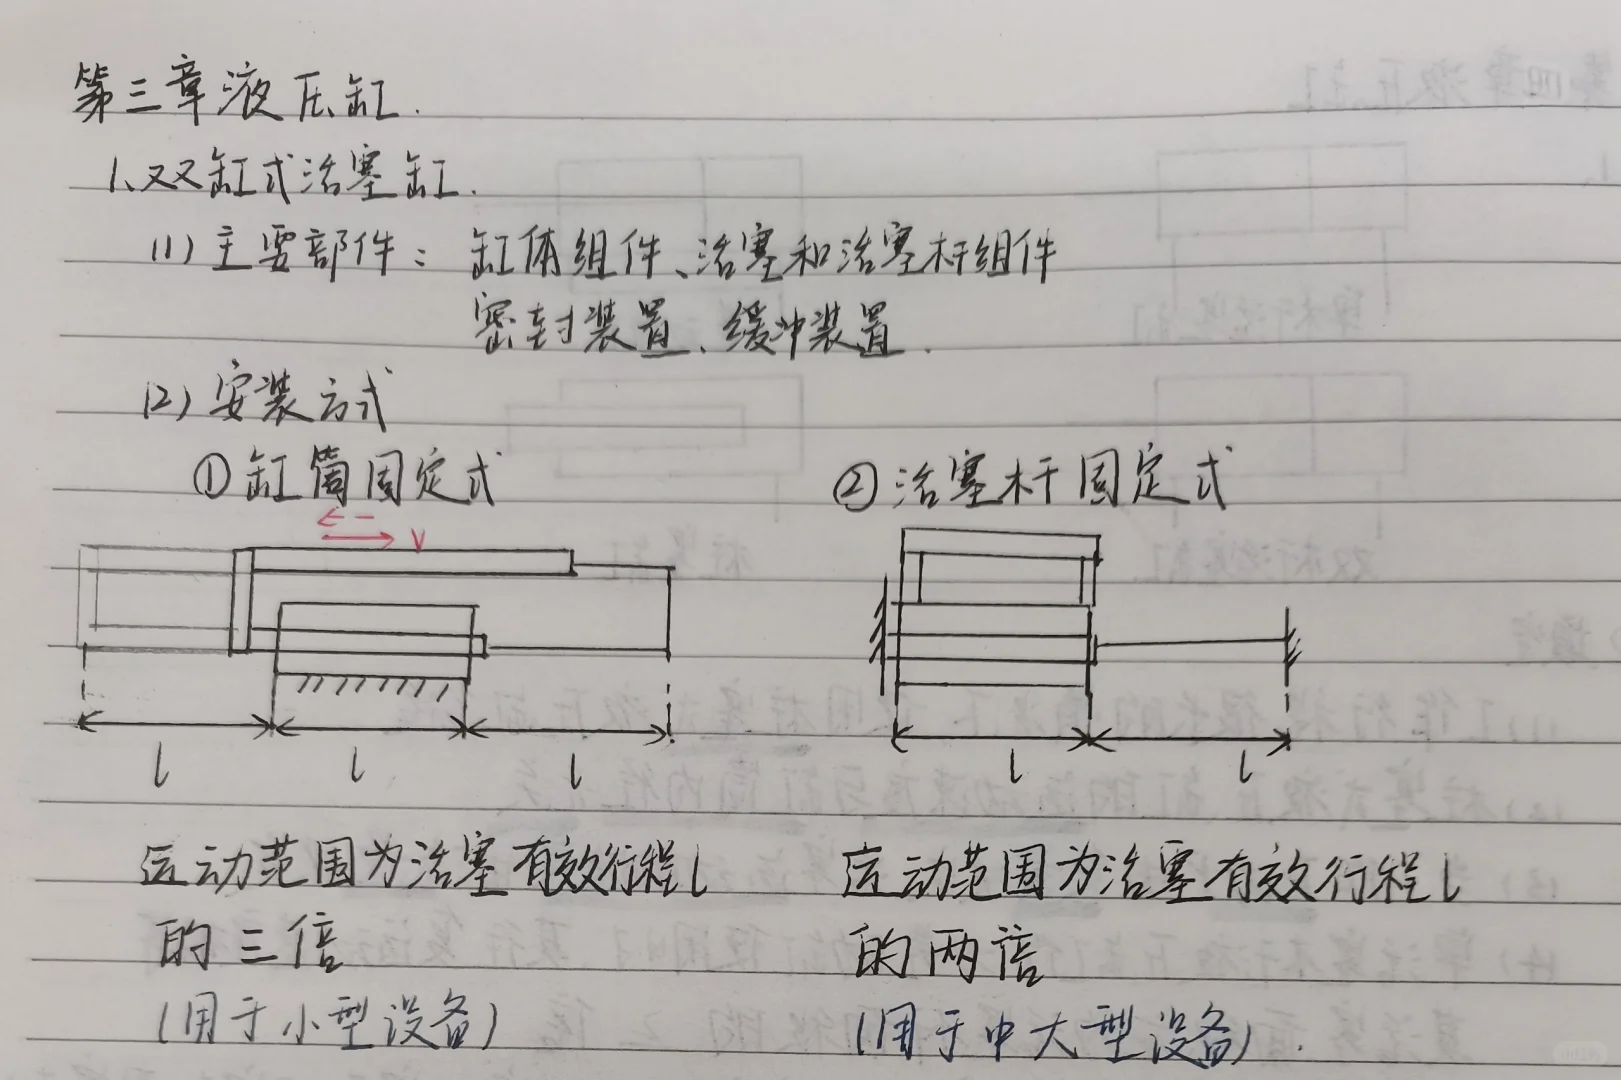 第三章液压缸.
1、双缸式活塞缸.
(1) 主要部件：缸体组件、活塞和活塞杆组件
密封装置、缓冲装置.
(2) 安装方式
①缸筒固定式
②活塞杆固定式
v
l l l
l l
运动范围为活塞有效行程l
的三倍
(用于小型设备)
运动范围为活塞有效行程l
的两倍
(用于中大型设备).